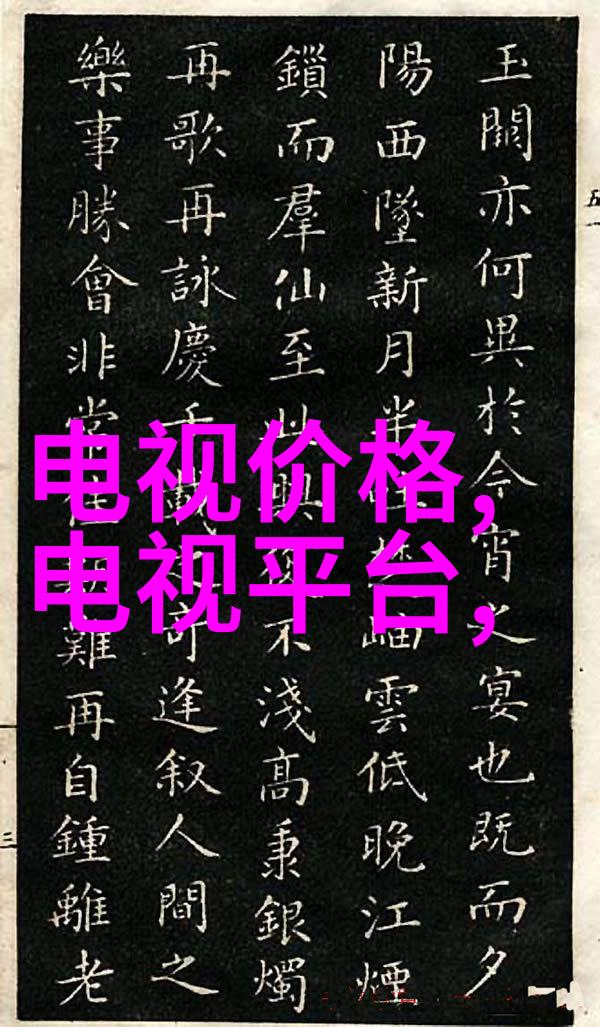 玉闕亦何異於今宵之宴也既而夕
陽西墜新月半岫雲低晚江煙
鎖而羣仙至此興不淺高秉銀燭
再歌再詠慶千載奇逢叙人間之
樂事勝會非常難再自鍾離老
电视价格,
电视平台,
五
三